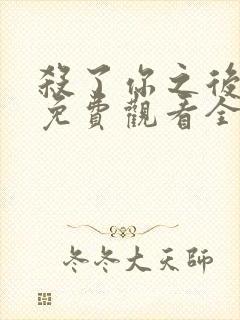 殺了你之後
免費觀看全
冬冬大天師